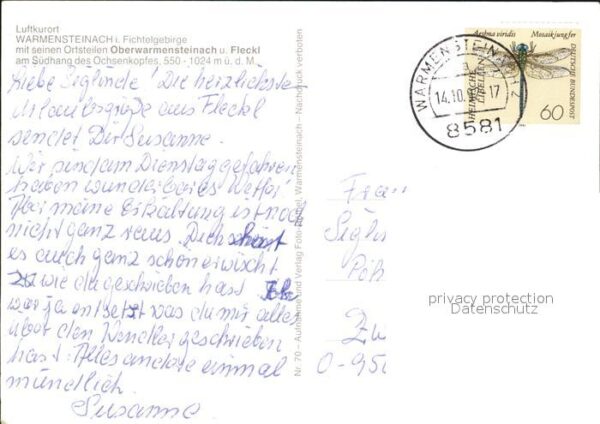 Luftkurort
WARMENSTEINACH i. Fichtelgebirge
mit seinen Ortsteilen Oberwarmensteinach u. Fleckl
am Südhang des Ochsenkopfes, 550 - 1024 m ü. d. M.
Liebe Siglinde! Die herzlichsten
Urlaubsgrüße aus Fleckl
sendet Dir Susanne.
Wir sind am Dienstag gefahren
haben wunderbares Wetter
Aber meine Erkältung ist noch
nicht ganz raus. Dich scheint
es auch ganz schön erwischt
zu wie du geschrieben hast Ich
war ja entsetzt was du mir alles
über den Wendler geschrieben
hast. Alles andere einmal
mündlich.
Susanne
Nr. 70 – Aufnahme und Verlag Foto Warmensteinach – Nachdruck verboten
WARMENSTEINACH
14.10. 17
HEIMISCHE
LIBELLEN
8581
Aeshna viridis Mosaikjungfer
DEUTSCHE BUNDESPOST
60
Frau
Sigl
Zw
O-95
privacy protection
Datenschutz